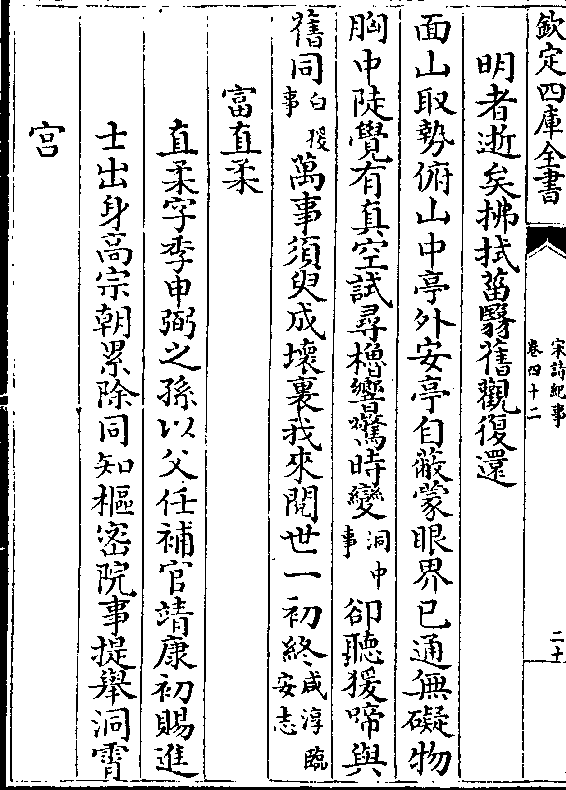 欽定四庫全書
宋詩紀事
卷四十二
二十
明者逝矣拂拭菑翳舊觀復還
面山取勢俯山中亭外安亭自蔽蒙眼界已通無礙物
胸中陡覺有真空試尋櫓響驚時變洞中事卻聽猨啼與
舊同白猨事萬事須臾成壞裏我來閱世一初終咸淳臨安志
富直柔
直柔字季申弼之孫以父任補官靖康初賜進
士出身高宗朝累除同知樞密院事提舉洞霄
宮